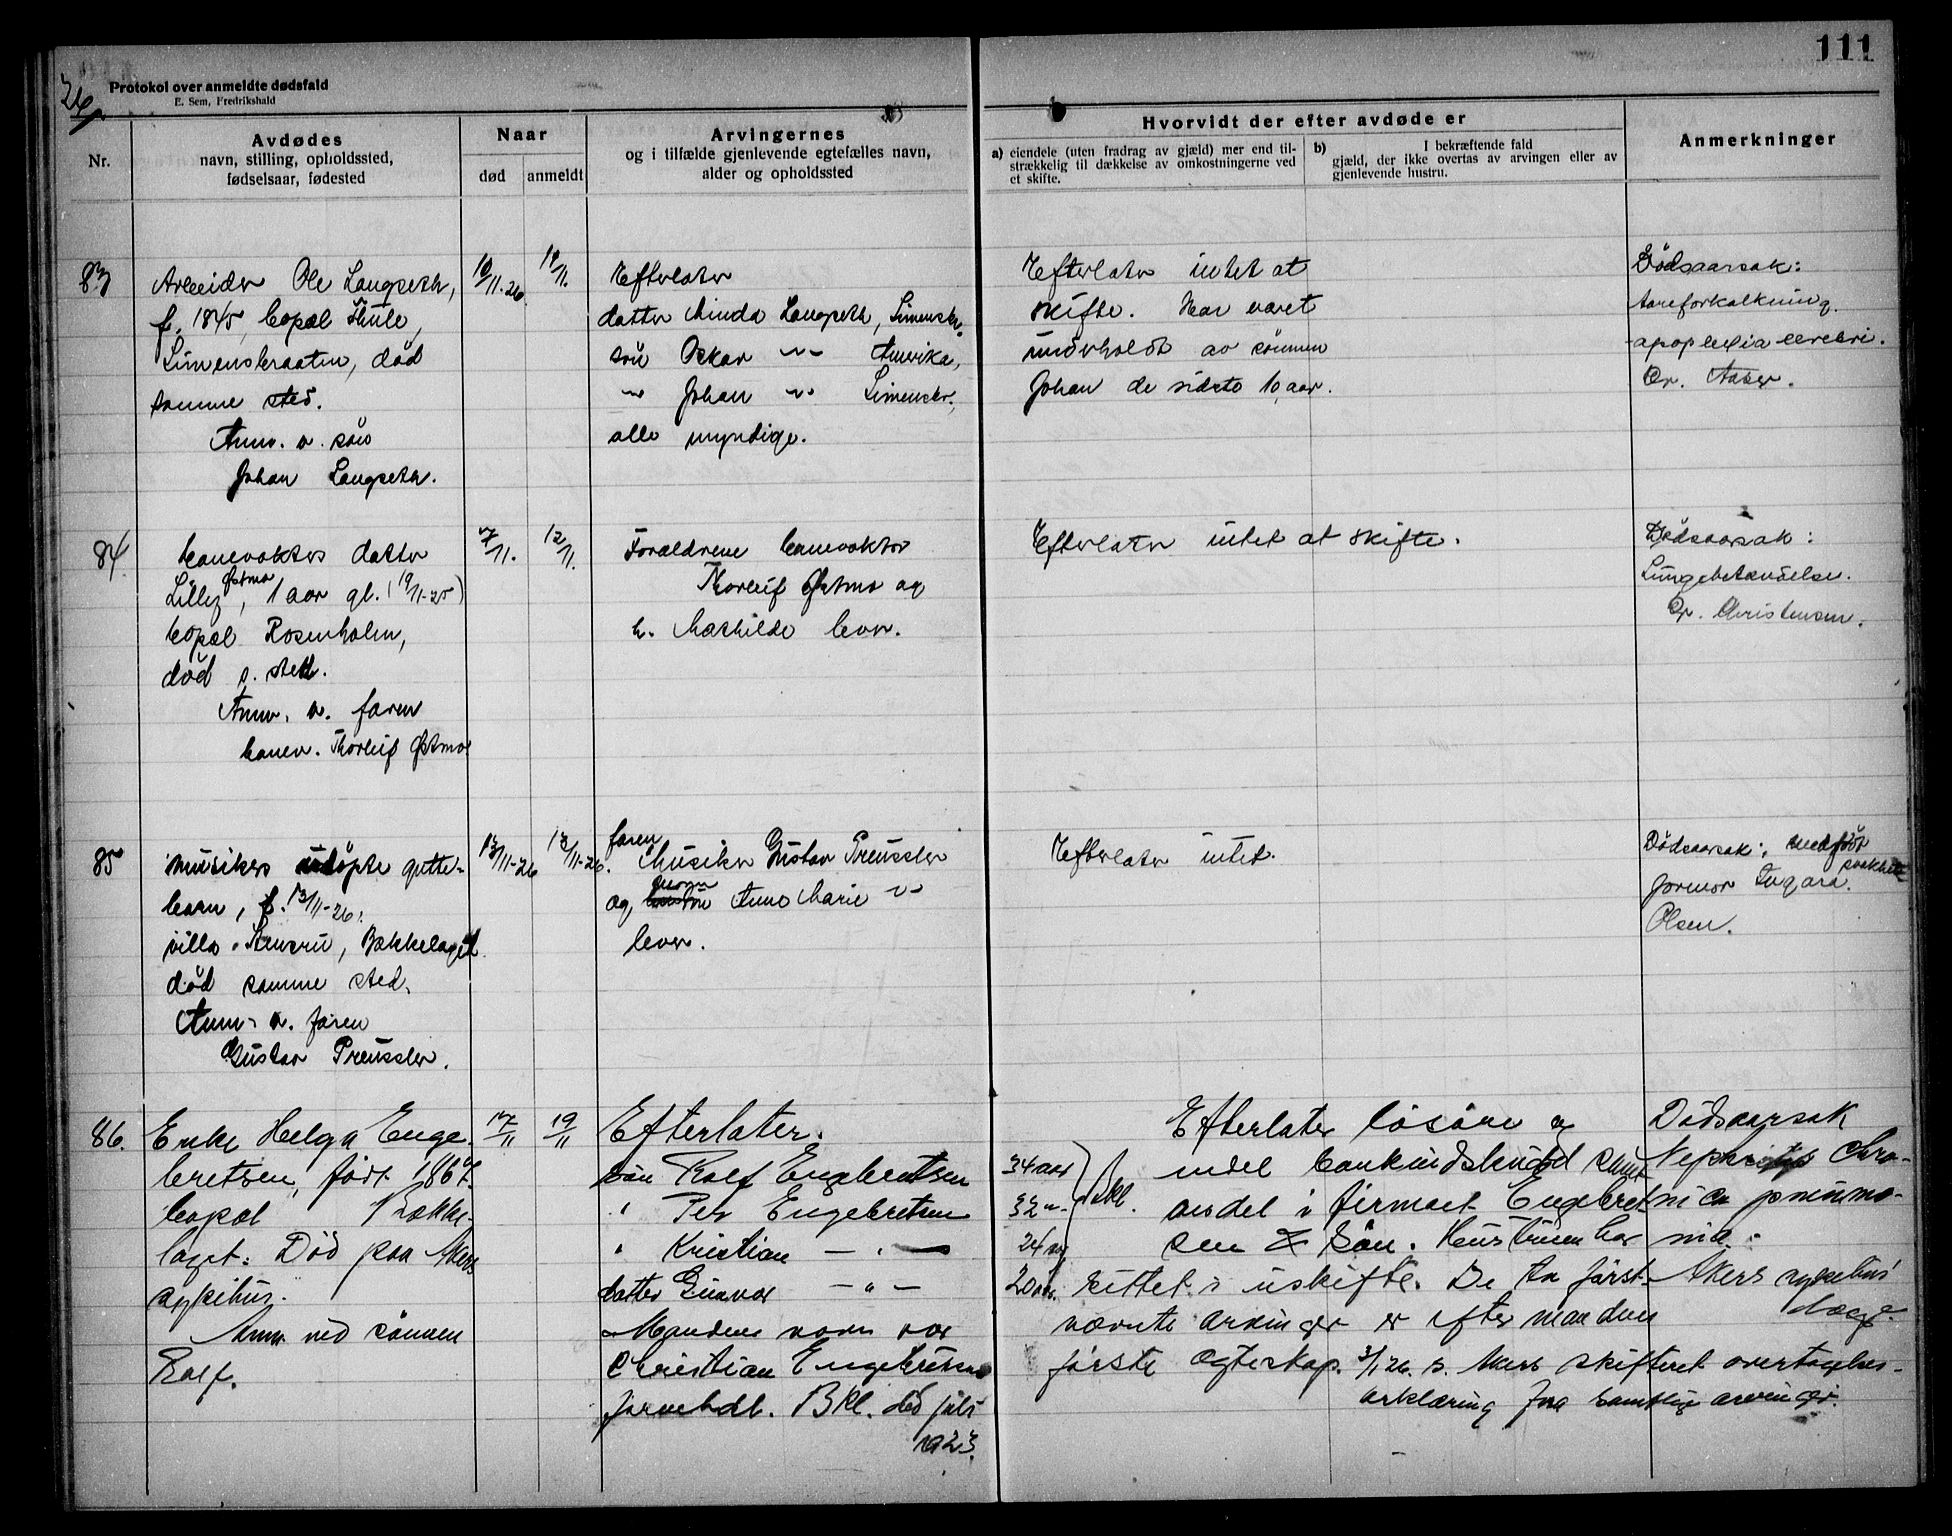 111
26
Protokol over anmeldte dødsfald
E. Sem, Fredrikshald
Nr.
Avdødes
navn, stilling, opholdssted,
fødselsaar, fødested
Naar
død
anmeldt
Arvingernes
og i tilfælde gjenlevende egtefælles navn,
alder og opholdssted
Hvorvidt der efter avdøde er
a) eiendele (uten fradrag av gjæld) mer end til-
strækkelig til dækkelse av omkostningerne ved
et skifte.
b) I bekræftende fald
gjæld, der ikke overtas av arvingen eller av
gjenlevende hustru.
Anmerkninger
83
Arbeider Ole Langseth,
f. 1845, bopæl Thule,
Simensbraaten, død
samme sted.
Anm. v. søn
Johan Langseth.
10/11-26.
12/11.
Efterlater
datter Minda Langseth, Simensbr.
søn Oskar -"- Amerika,
-"- Johan -"- Simensbr.,
alle myndige.
Efterlater intet at
skifte. Har været
underholdt av sønnen
Johan de sidste 10 aar.
Dødsaarsak:
Aareforkalkning.
apoplexia cerebri.
Dr. Aaser.
84.
banevokters datter
Lilly Østmo, 1 aar gl. (19/11-25)
bopæl Rosenholm,
død s. sted.
Anm. v. faren
banev. Thorleif Østmo
7/11.
12/11.
Forældrene banevokter
Thorleif Østmo og
h. Mathilde lever.
Efterlater intet at skifte.
Dødsaarsak:
Lungebetændelse.
Dr. Christensen.
85
Musikers udøpte gutte-
barn, f. 13/11-26.
villa Bækkelaget
død samme sted.
Anm. v. faren
Gustav Preussler.
13/11-26
13/11-26.
faren
Musiker Gustav Preussler
og moren Anne Marie -"-
lever.
Efterlater intet.
Dødsaarsak: medfødt
svakhet.
Jormor Ingara
Olsen.
86.
Enke Helga Enge-
bretsen, født 1867.
bopæl Bække-
laget. Død paa Akers
sykehus.
Anm. ved sønnen
Rolf.
17/11
19/11
Efterlater:
søn Rolf Engebretsen 34 aar
" Per Engebretsen 32 "
" Kristian - " - 24 "
datter Gunvor - " - 20 aar.
Bkl.
Mandens navn var
Christian Engebretsen
jernhdl. Bkl. død juli
1923.
Efterlater løsøre og
endel bankindskudd samt
andel i firmaet Engebret-
sen & Søn. Hustruen har
sittet i uskifte. De to først-
nævnte arvinger er efter mandens
første egteskap. 3/1 26. s. Akers skifteret overtagelses-
erklæring fra samtlige arvinger.
Dødsaarsak
Nephritis chro-
nica pneumo-
nia.
Akers sykehus'
læge.